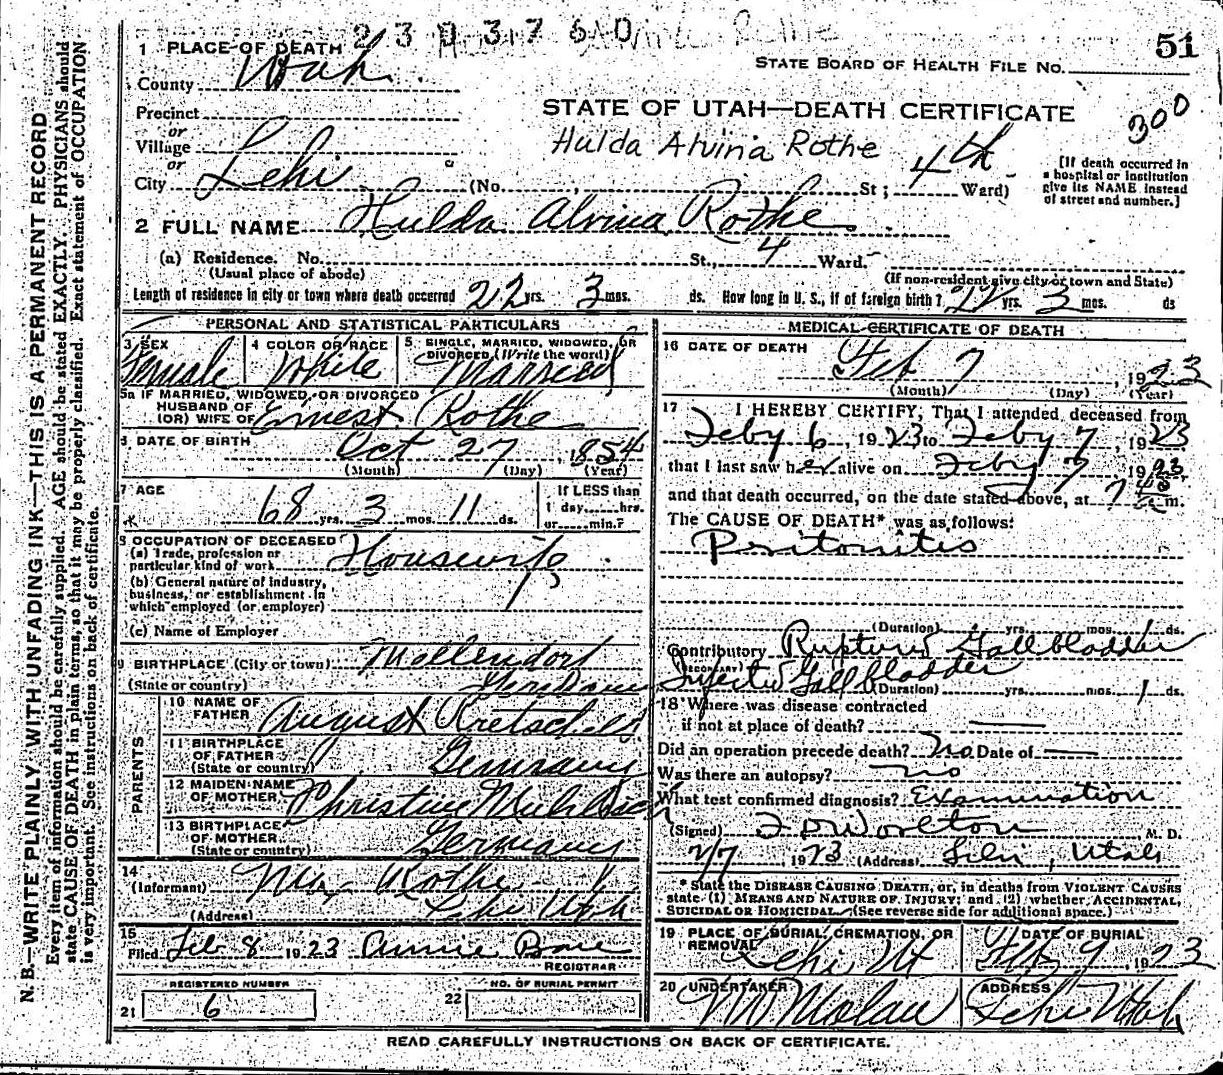 2 3 0 3 7 6 0 Rothe
51
1 PLACE OF DEATH
STATE BOARD OF HEALTH FILE NO.
County Utah
STATE OF UTAH—DEATH CERTIFICATE
300
Precinct
or
Hulda Alvina Rothe
Village
or
City Lehi (No. , St; 4th Ward)
[If death occurred in
a hospital or institution
give its NAME instead
of street and number.]
2 FULL NAME Hulda Alvina Rothe
(a) Residence. No. St., 4 Ward.
(Usual place of abode)
(If non-resident give city or town and State)
Length of residence in city or town where death occurred 22 yrs. 3 mos. ds. How long in U. S., if of foreign birth? 22 yrs. 3 mos. ds
PERSONAL AND STATISTICAL PARTICULARS
3 SEX
Female
4 COLOR OR RACE
White
5 SINGLE, MARRIED, WIDOWED, OR
DIVORCED, (Write the word)
Married
5a IF MARRIED, WIDOWED, OR DIVORCED
HUSBAND OF
(OR) WIFE OF Ernest Rothe
6 DATE OF BIRTH Oct 27, 1854
(Month) (Day) (Year)
7 AGE
68 yrs. 3 mos. 11 ds.
If LESS than
1 day, hrs.
or min.?
8 OCCUPATION OF DECEASED
(a) Trade, profession or
particular kind of work Housewife
(b) General nature of industry,
business, or establishment in
which employed (or employer)
(c) Name of Employer
9 BIRTHPLACE (City or town) Mollendorf
(State or country) Germany
PARENTS
10 NAME OF
FATHER August
11 BIRTHPLACE
OF FATHER
(State or country) Germany
12 MAIDEN NAME
OF MOTHER Christine
13 BIRTHPLACE
OF MOTHER
(State or country) Germany
14
(Informant) Rothe
(Address) Lehi Utah
15
Filed Feb 8 1923 Annie
REGISTRAR
REGISTERED NUMBER
21 6
NO. OF BURIAL PERMIT
22
MEDICAL CERTIFICATE OF DEATH
16 DATE OF DEATH
Feb 7, 1923
(Month) (Day) (Year)
17 I HEREBY CERTIFY, That I attended deceased from
Feby 6, 1923 to Feby 7, 1923
that I last saw her alive on Feby 7, 1923
and that death occurred, on the date stated above, at 7 m.
The CAUSE OF DEATH* was as follows:
Peritonitis
(Duration) yrs. mos. 1 ds.
Contributory Ruptured Gallbladder
(SECONDARY)
Infected Gallbladder (Duration) yrs. mos. 1 ds.
18 Where was disease contracted
if not at place of death?
Did an operation precede death? No Date of
Was there an autopsy? no
What test confirmed diagnosis? Examination
(Signed) M. D.
2/7 1923 (Address) Lehi, Utah
* State the DISEASE CAUSING DEATH, or, in deaths from VIOLENT CAUSES
state (1) MEANS AND NATURE OF INJURY; and (2) whether ACCIDENTAL,
SUICIDAL OR HOMICIDAL. (See reverse side for additional space.)
19 PLACE OF BURIAL, CREMATION, OR
REMOVAL
Lehi Ut
DATE OF BURIAL
Feb 9, 1923
20 UNDERTAKER
ADDRESS
Lehi Utah
READ CAREFULLY INSTRUCTIONS ON BACK OF CERTIFICATE.
N. B.—WRITE PLAINLY WITH UNFADING INK—THIS IS A PERMANENT RECORD
Every item of information should be carefully supplied. AGE should be stated EXACTLY. PHYSICIANS should
state CAUSE OF DEATH in plain terms, so that it may be properly classified. Exact statement of OCCUPATION
is very important. See instructions on back of certificate.